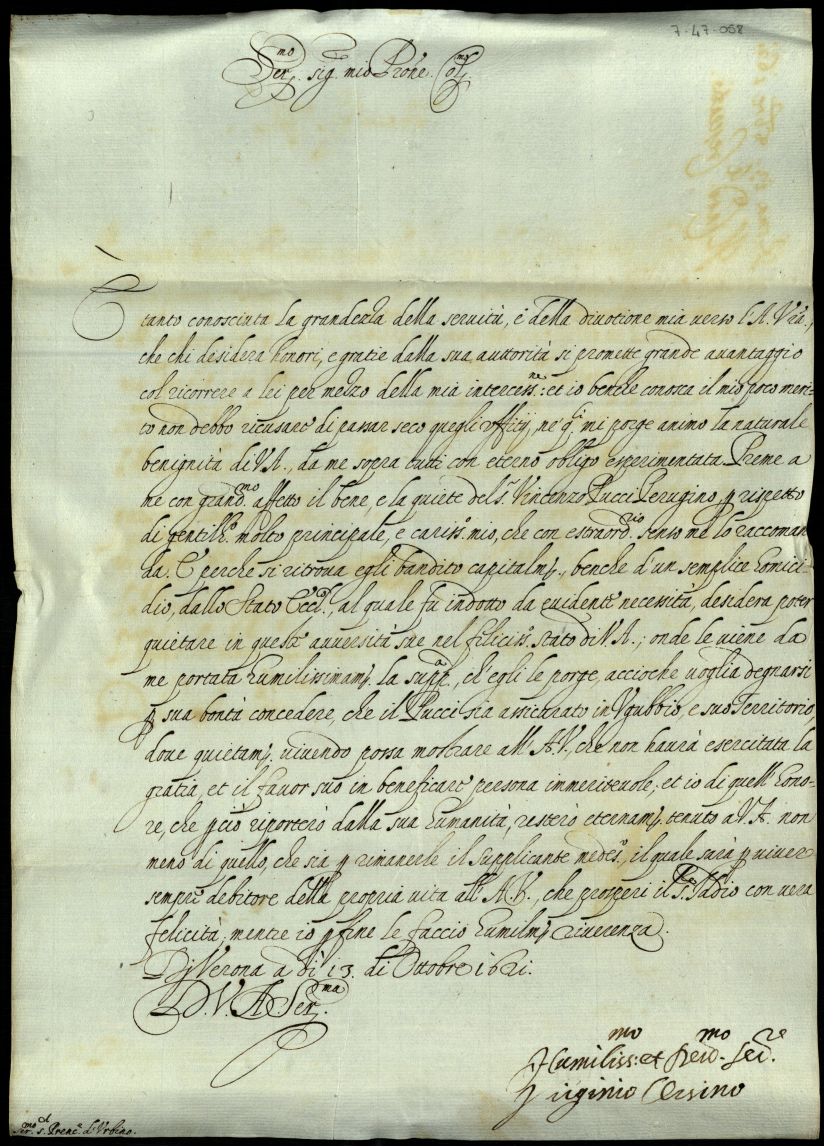 7-47-068
Ser.mo sig. mio Prone. Col.mo
È tanto conosciuta la grandezza della seruitù, e della diuotione mia uerso l'A. Vra.,
che chi desidera honori, e gratie dalla sua auttorità si promette grande auantaggio
col ricorrere a lei per mezzo della mia intercess.ne: et io benche conosca il mio poco meri-
to non debbo ricusare di passar seco quegli uffitij, ne' q.li mi porge animo la naturale
benignità di V.A., da me sopra tutti con eterno obligo esperimentata. Preme a
me con grand.mo affetto il bene, e la quiete del s. Vincenzo Pucci Perugino, p rispetto
di gentilh.o molto principale, e cariss.o mio, che con estraord.rio senso me lo raccoman
da. E perche si ritroua egli bandito capitalm., benche d'un semplice homici-
dio, dallo Stato Eccl., al quale fu indotto da euidente necessità, desidera poter
quietare in queste auuersità sue nel feliciss. stato di V.A.; onde le uiene da
me portata humilissimam. la supp., ch'egli le porge, accioche uoglia degnarsi
p sua bontà concedere, che il Pucci sia assicurato in Vgubbio, e suo Territorio,
doue quietam. uiuendo possa mostrare all'A.V., che non haurà esercitata la
gratia, et il fauor suo in beneficare persona immeriteuole; et io di quell'hono-
re, che p ciò riporterò dalla sua humanità, resterò eternam. tenuto a V.A. non
meno di quello, che sia p rimanerle il supplicante medes., il quale sarà p uiuer
sempre debitore della propria uita all'A.V., che prosperi il S. Iddio con uera
felicità, mentre io p fine le faccio humilm. riuerenza.
Di Verona a dì 13. di Ottobre 1621.
D. V. A Ser.ma
Humiliss.mo et Deu.mo Ser.re
Virginio Orsino
Ser.mo s. Prenc. d'Vrbino.